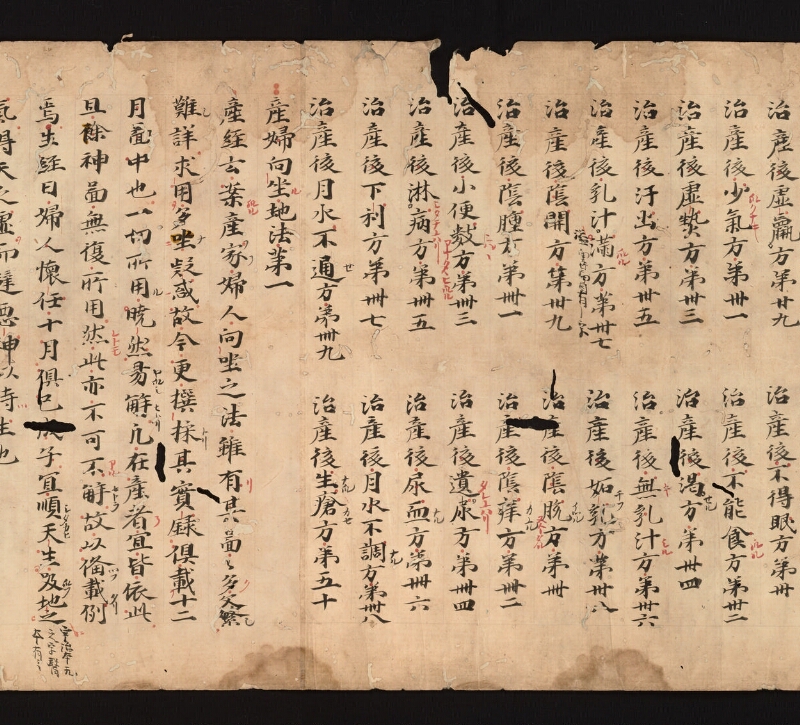 治產後虛羸方第廿九 治產後不得眠方第卅
治產後少氣方第卅一 治產後不能食方第卅二
治產後虛熱方第卅三 治產後渴方第卅四
治產後汗出方第卅五 治產後無乳汁方第卅六
治產後乳汁滿方第卅七 治產後妬乳方第卅八
治產後陰開方第卅九 治產後陰脫方第卌
治產後陰腫方第卌一 治產後陰痒方第卌二
治產後小便數方第卌三 治產後遺尿方第卌四
治產後淋病方第卌五 治產後尿血方第卌六
治產後下利方第卌七 治產後月水不調方第卌八
治產後月水不通方第卌九 治產後生瘡方第五十
產婦向坐地法第一
產經云案產家婦人向坐之法雖有其啚〻多文繁
難詳求用多坐疑惑故今更撰採其實錄俱載十二
月啚中也一切所用曉然易解凡在產者宜皆依此
且餘神啚無復所用然此亦不可不解故以俻載例
焉生經曰婦人懷任十月俱已成子宜順天生及地之
氣得天之虛而違惡神以待生也